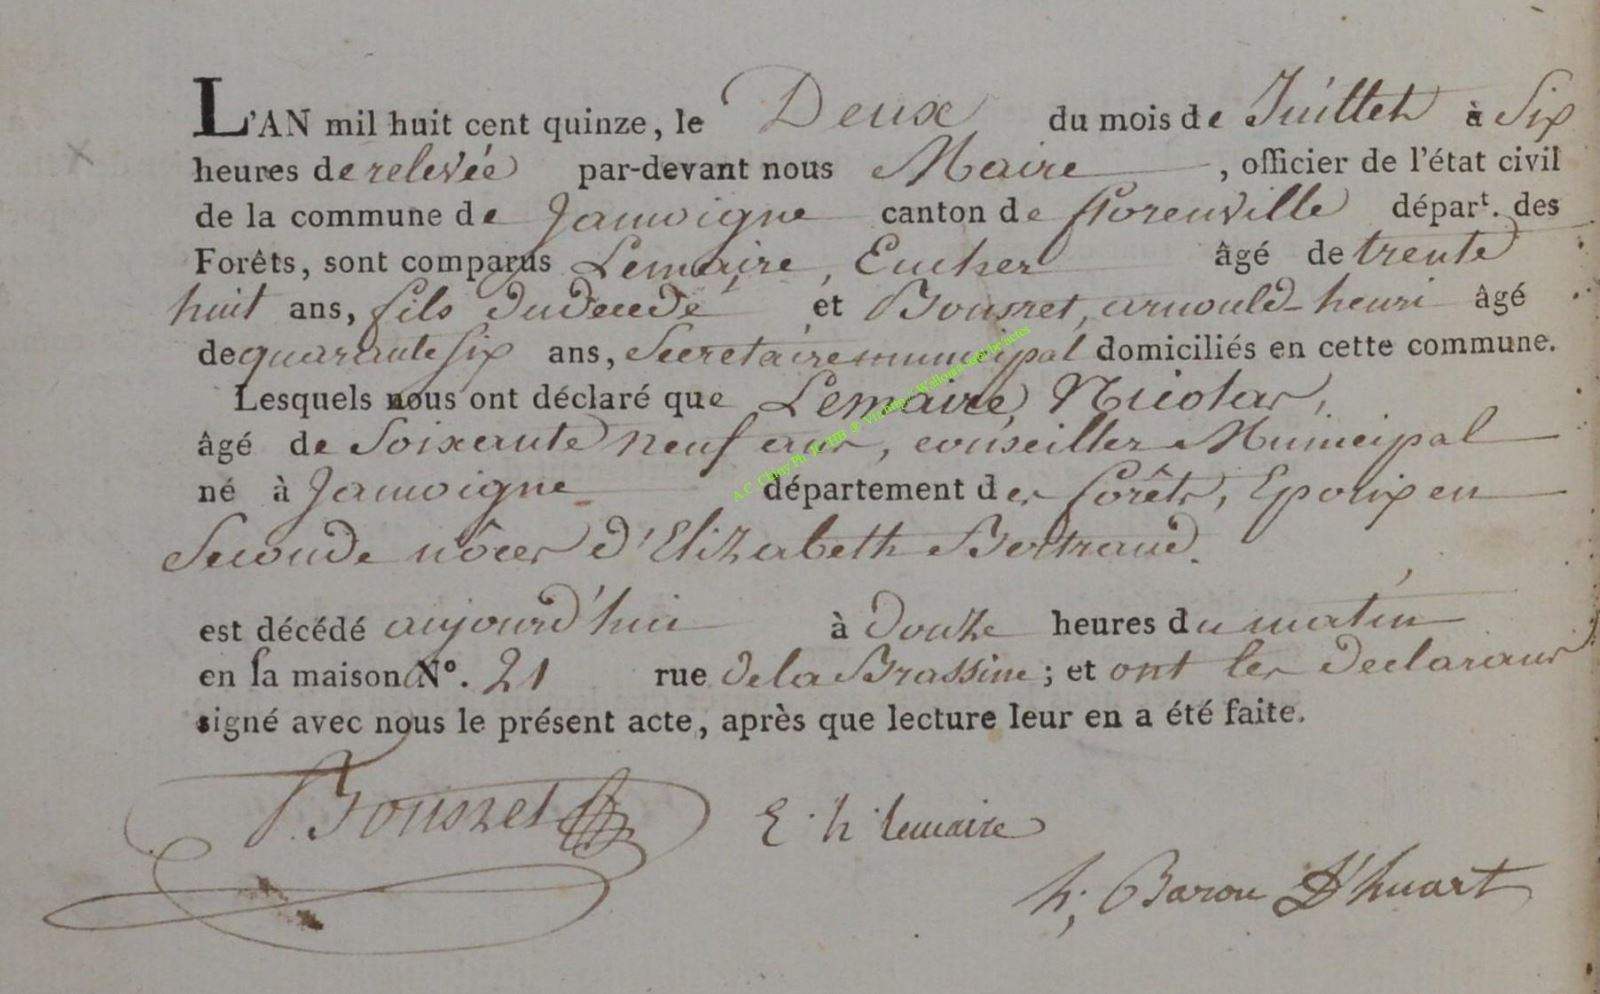 L'AN mil huit cent quinze, le Deux du mois de Juillet à Six
heures de relevée par-devant nous Maire, officier de l'état civil
de la commune de Jamoigne canton de florenville départ. des
Forêts, sont comparus Lemaire, Eucher âgé de trente
huit ans, fils du décédé et Bousret, arnould-henri âgé
de quarante six ans, Secretaire municipal domiciliés en cette commune.
Lesquels nous ont déclaré que Lemaire, Nicolas,
âgé de Soixante neuf ans, conseiller Municipal
né à Jamoigne département des forêts, Epoux en
Seconde nôces d'Elizabeth Bertrand.
est décédé aujourd'hui à Douze heures du matin
en sa maison N°. 21 rue de la Brassine; et ont les declarans
signé avec nous le présent acte, après que lecture leur en a été faite.
Bousret E. h lemaire
h; Baron D'huart